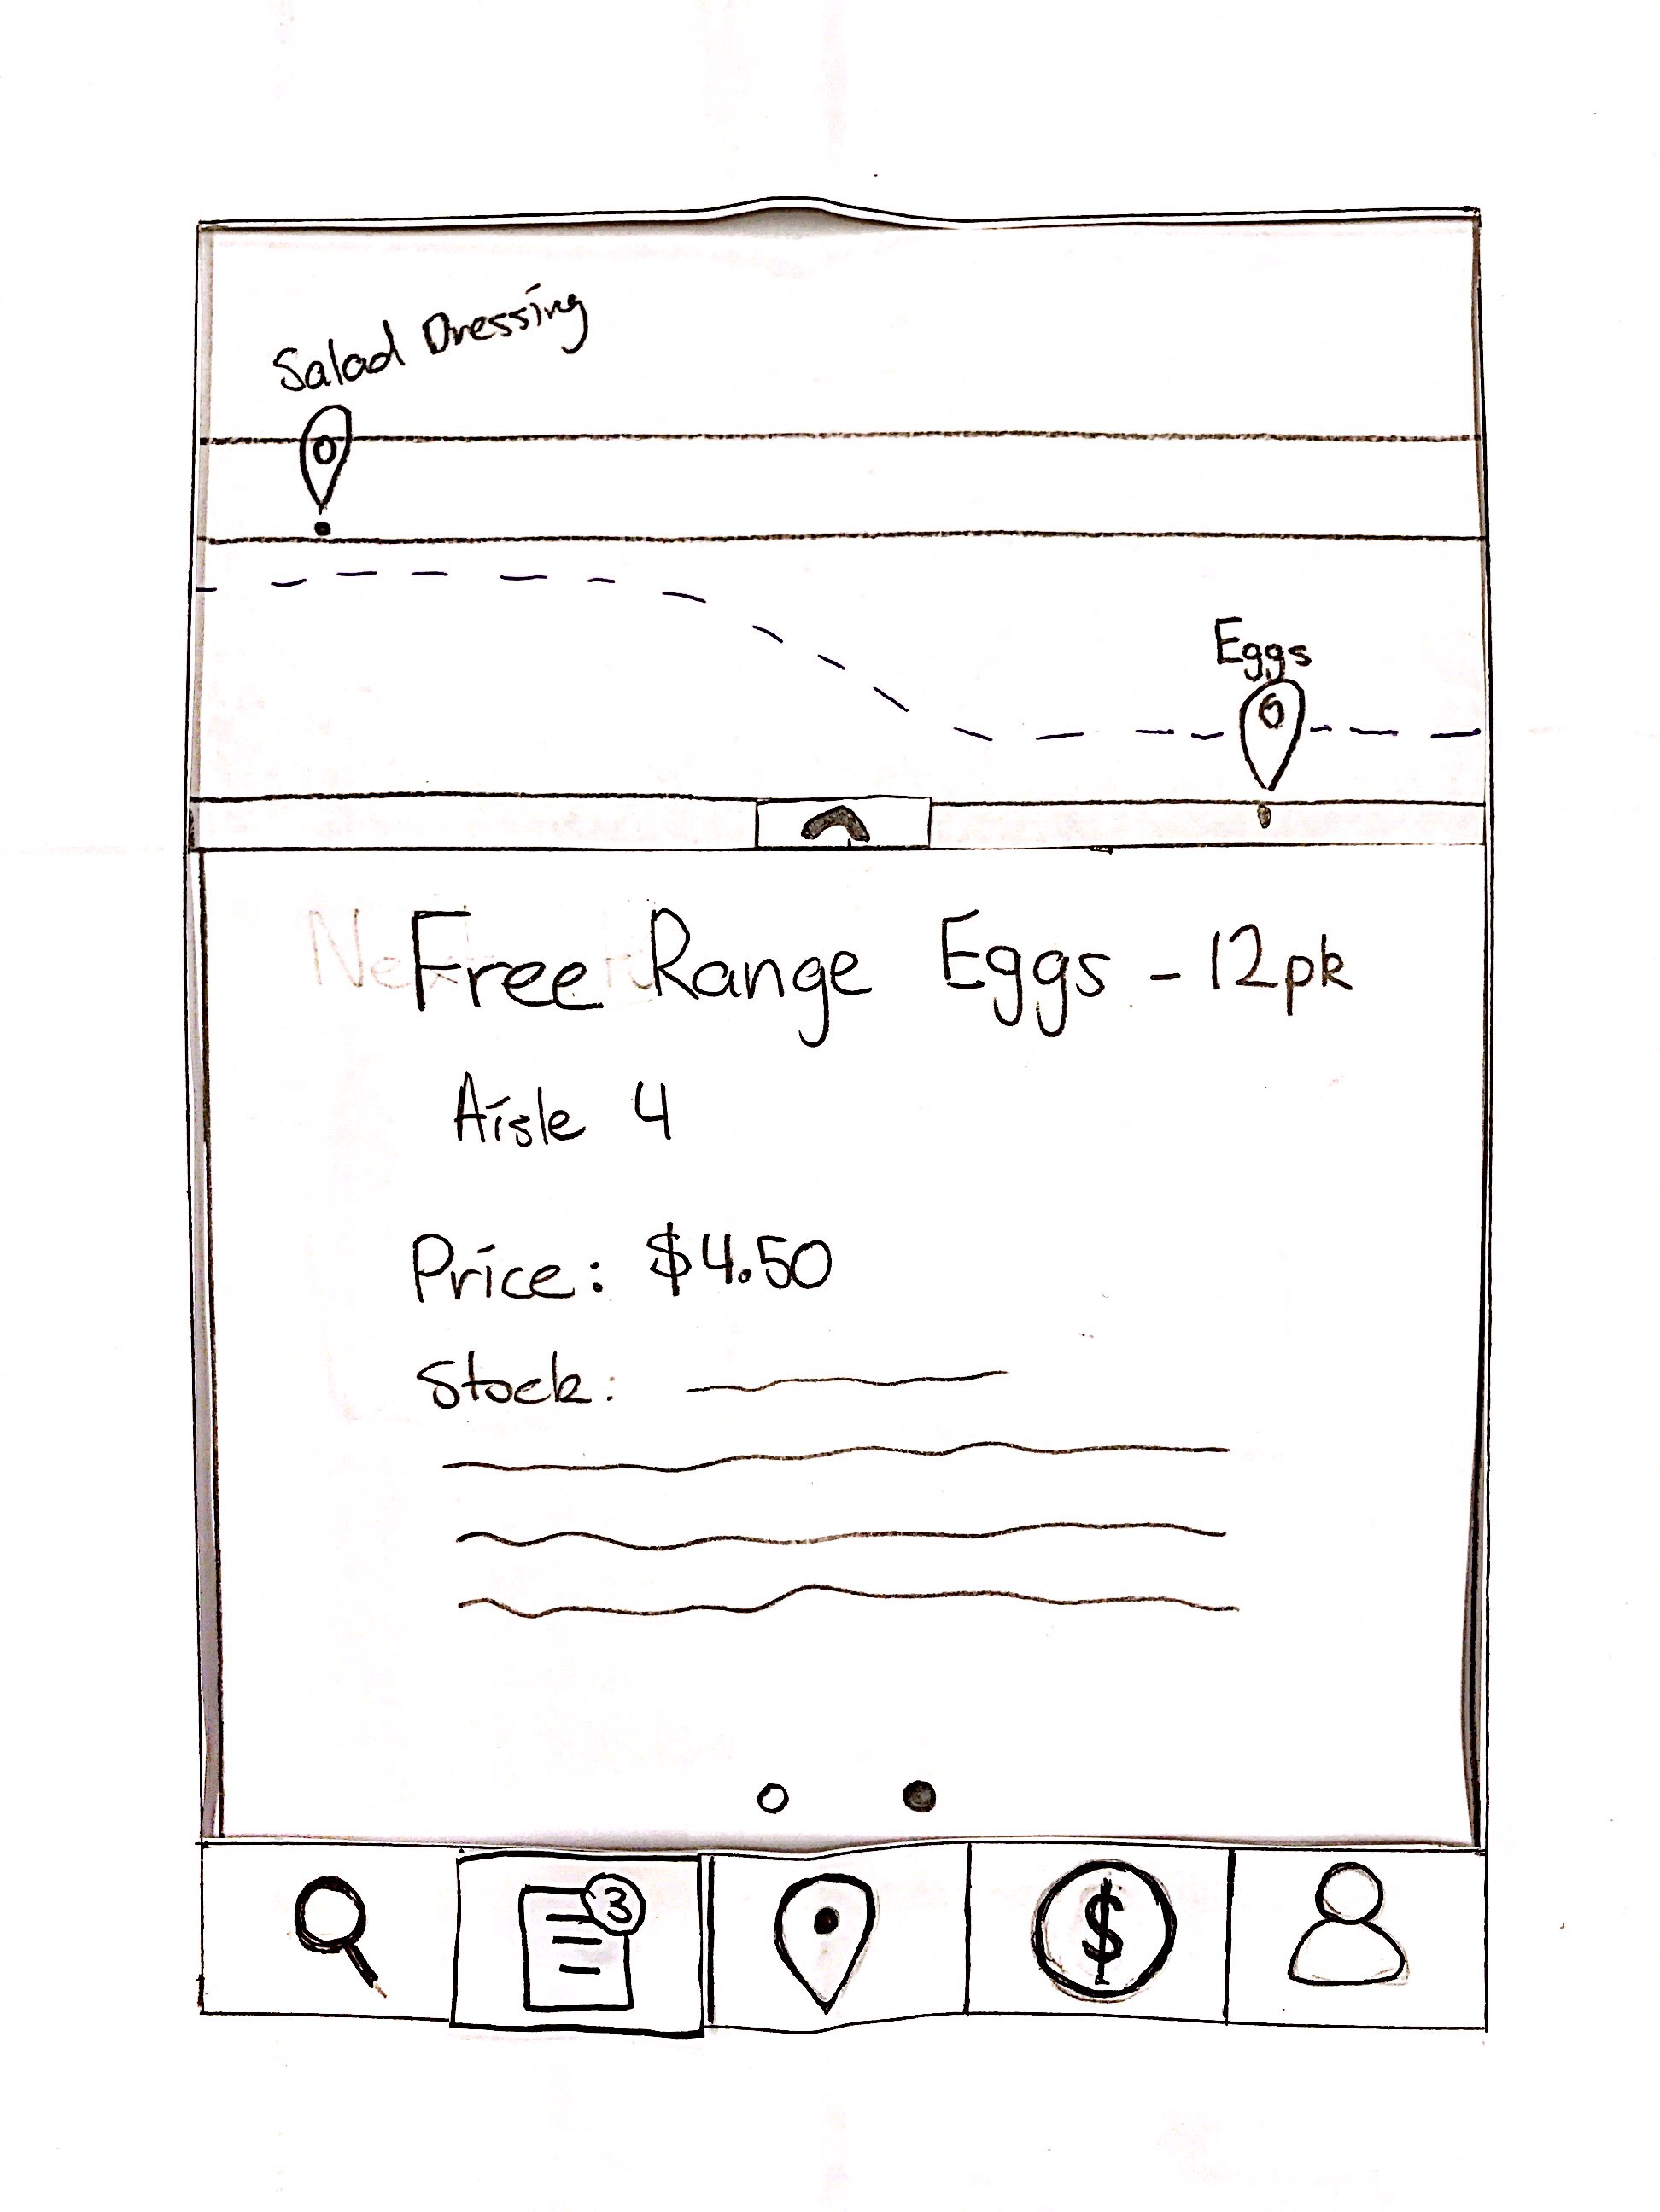 Salad Dressing
Eggs
Free Range Eggs - 12pk
Aisle 4
Price: $4.50
Stock:
3
$